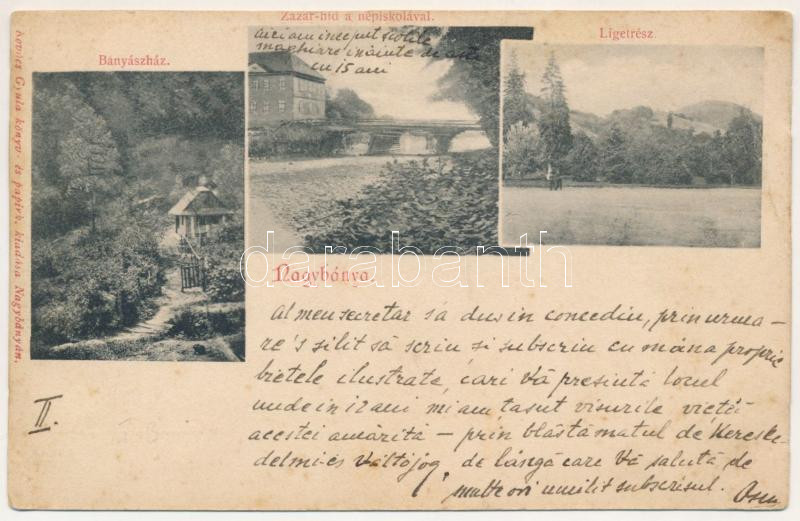 Zazar-híd a népiskolával.
Bányászház.
Ligetrész.
aici am inceput scolile
maghiare inainte de
cu 15 ani
Kovács Gyula könyv- és papírk. kiadása Nagybányán.
Nagybánya.
darabanth
Al meu secretar s'a dus in concediu, prin urma-
re's silit să scriu si subscriu cu mâna proprie
bietele ilustrate, cari Vă presintă locul
unde in 12 ani mi am țasut visurile vieței
acestei amărită — prin blăstămatul de Kereske-
delmi és Váltójog, de lângă care Vă salută de
multe ori umilit subscrisul.
II.